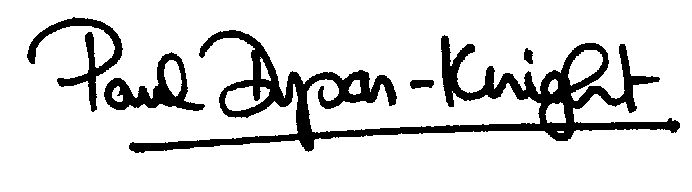 Paul Dyson-Knight